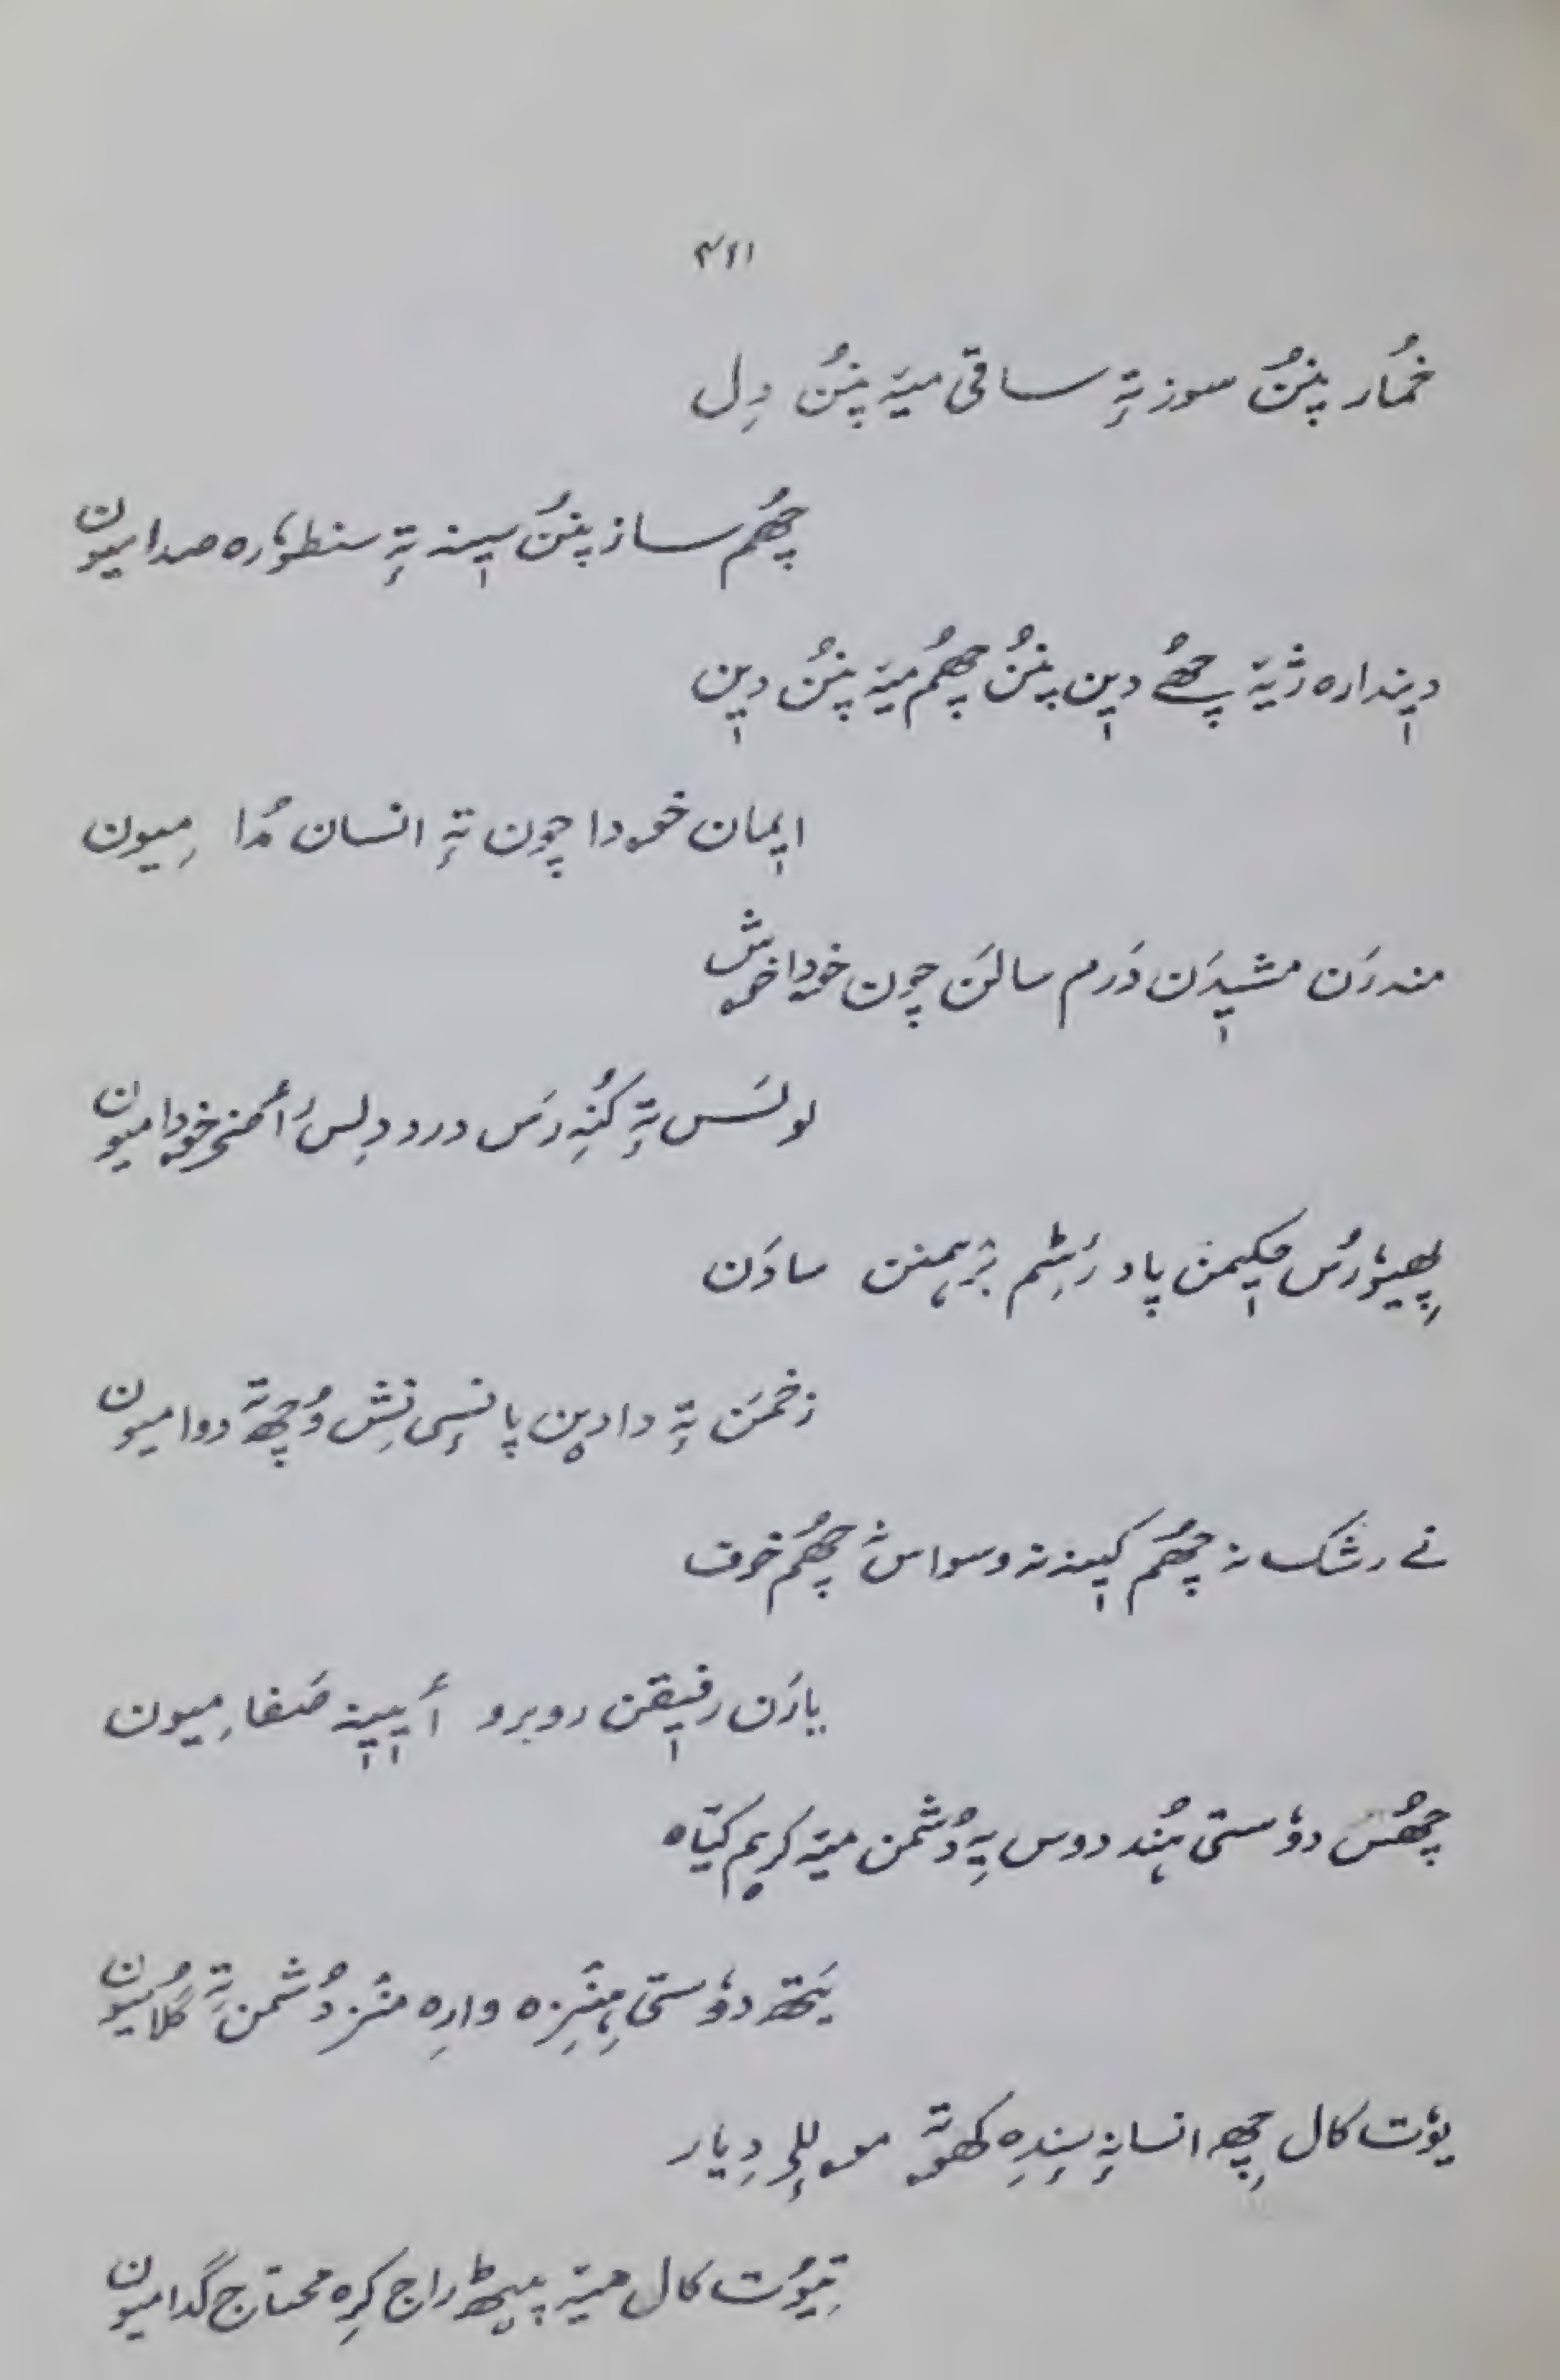 ۴۱۱
خمُار پنُن سوز تہٕ ساقی میٚہ پنُن دِل
چھُم ساز پنُن سیٖنہ تہٕ سنطوٗرہ صدا میون
دیٖندارہ ژیٚہ چھُے دیٖن پنُن چھُم میٚہ پنُن دیٖن
ایٖمان خۄدا چون تہٕ انسان مُدا مِیون
مندرَن مشیٖدَن دَرم سالَن چون خۄدا خۄش
لولَس تہٕ کُنِرَس درد دِلس أمۍ خۄدا میون
پھیوٗرُس حکیٖمن پاد رٔٹِم برٛہمنن سادَن
زخمَن تہٕ دادیٚن پانسٕے نِش وُچھتہٕ دوا میون
نے رشک نہ چھُم کیٖنہ نہ وسواس نہٕ چھُم خوف
یارَن رفیٖقن روبرو أیٖیٖنہٕ صَفا مِیون
چھُس دوٗستی ہُند دوس بہٕ دُشمن میٚہ کریم کیٚاہ
یَتھ دوٗستی ہِنٛزِہ وارِہ منٛز دُشمن تہٕ گُلا میون
یوٗت کال چھِ انسانہٕ سٕندِہ کھۄتہٕ مۄللٕے دِیار
تِیوٗت کال میٚہ پیٚٹھ راج کرِہ محتاج گدا میون